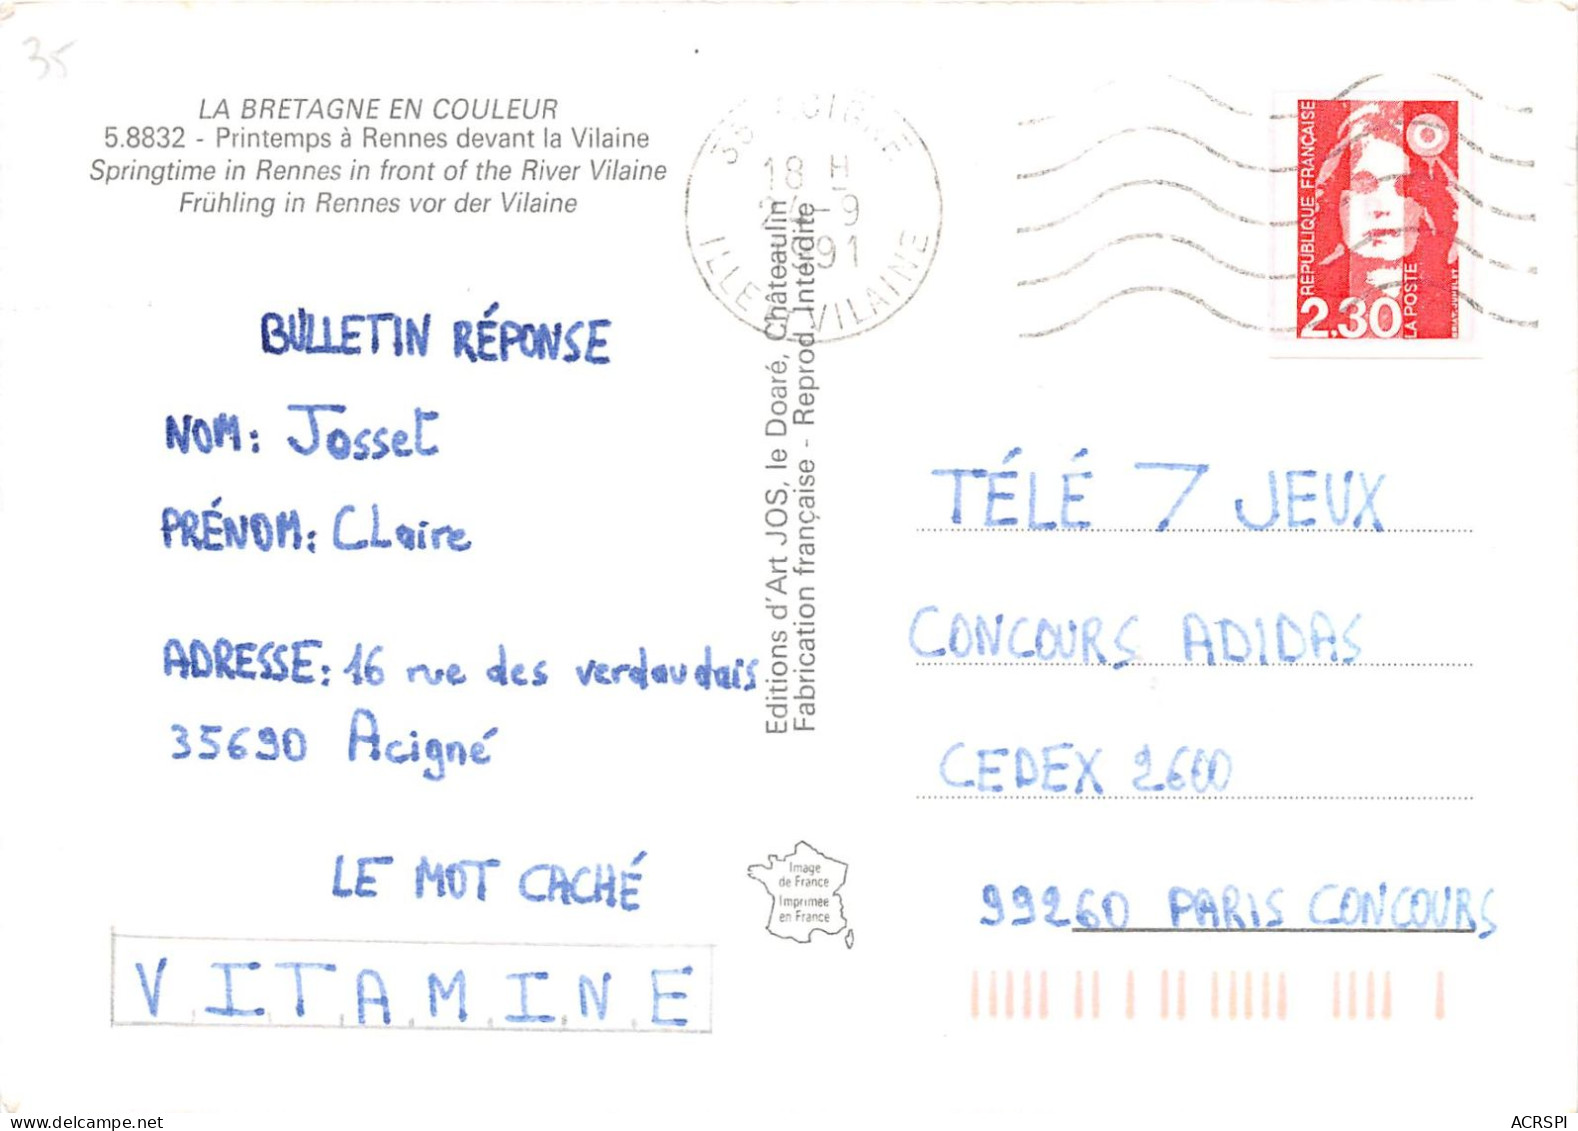 35
LA BRETAGNE EN COULEUR
5.8832 - Printemps à Rennes devant la Vilaine
Springtime in Rennes in front of the River Vilaine
Frühling in Rennes vor der Vilaine
BULLETIN RÉPONSE
NOM: Josset
PRÉNOM: CLaire
ADRESSE: 16 rue des verdaudais
35690 Acigné
LE MOT CACHÉ
VITAMINE
Editions d'Art JOS, le Doaré, Châteaulin
Fabrication française - Reprod. Interdite
Image
de France
Imprimée
en France
35
18 H
24-9
1991
ILLE & VILAINE
RÉPUBLIQUE FRANÇAISE
2,30
LA POSTE
TÉLÉ 7 JEUX
CONCOURS ADIDAS
CEDEX 2600
99260 PARIS CONCOURS
ACRSPI